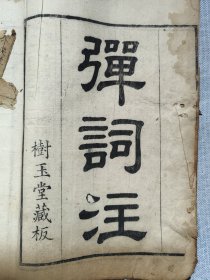 彈詞注
樹玉堂藏板